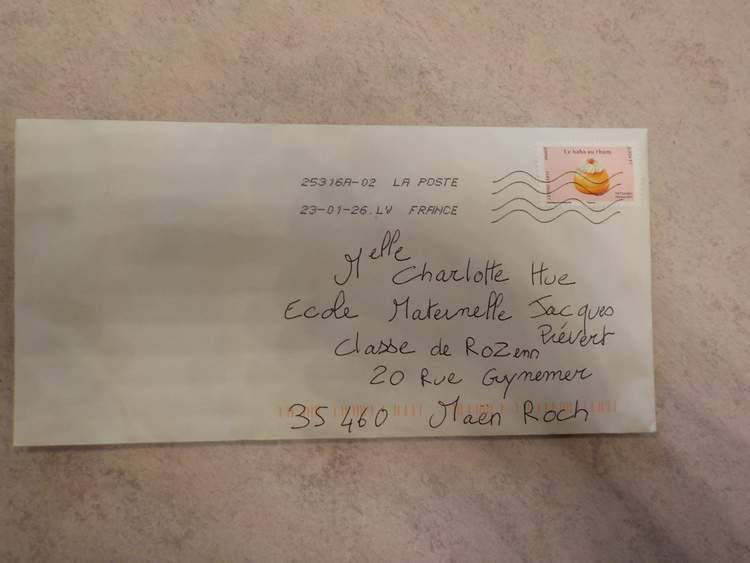 Le baba au rhum
25316A-02 LA POSTE
23-01-26.LV FRANCE
Melle Charlotte Hue
Ecole Maternelle Jacques Prévert
Classe de Rozenn
20 Rue Guynemer
35 460 Maën Roch